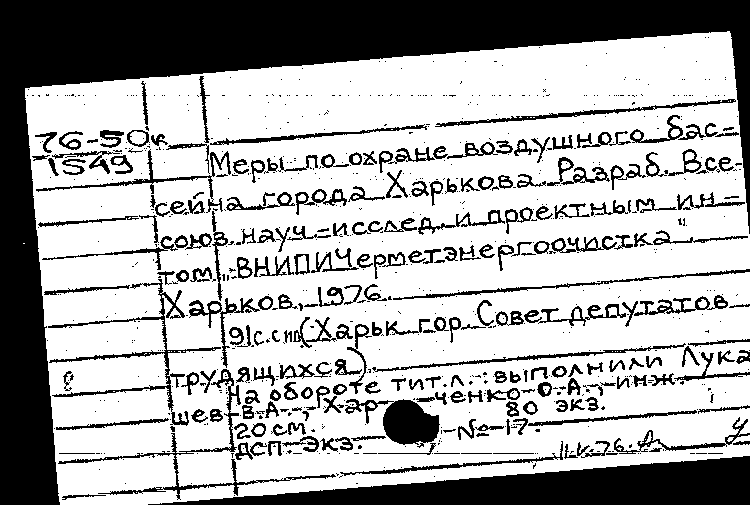 76-50к
1549
Меры по охране воздушного бас=
сейна города Харькова. Разраб. Все-
союз. науч=исслед. и проектным ин=
том „ВНИПИЧерметэнергоочистка".
Харьков, 1976.
91с. с ил. (Харьк. гор. Совет депутатов
трудящихся).
На обороте тит. л.: выполнили Лука
шев В.А., Хар ченко О.А., инж.
20 см. 80 экз.
ДСП. Экз. №17.
11.V.76.